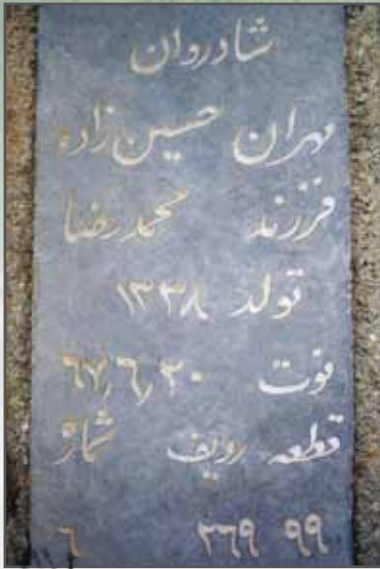 شادروان
مهران حسین زاده
فرزند محمدرضا
تولد ۱۳۳۸
فوت ۶۷٫۶٫۳۰
قطعه ردیف شماره
۹۹ ۳۶۹ ۶